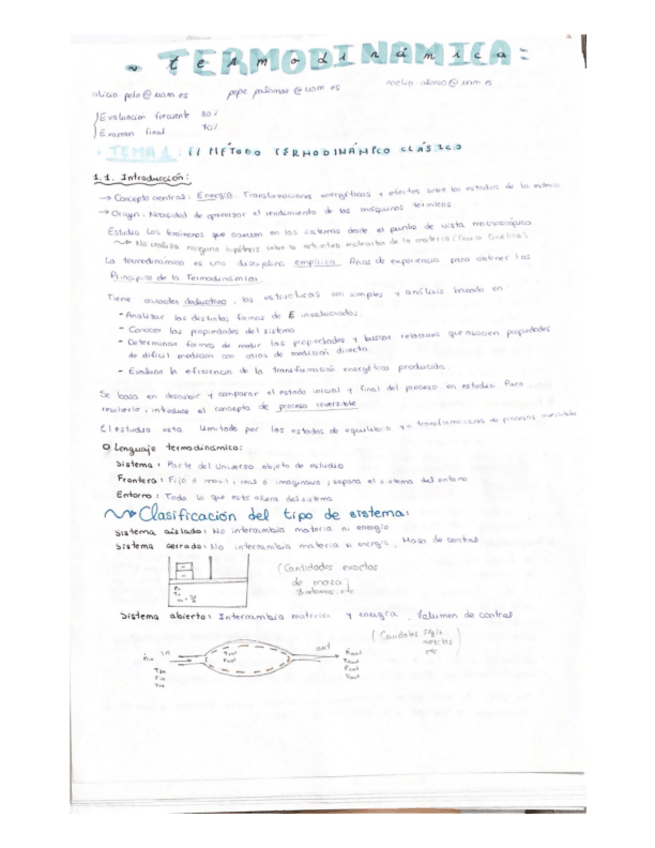 ~ TERMODINÁMICA:
termodinámica
alicia.polo@uam.es pepe.palomar@uam.es noelia.alonso@uam.es
Evaluación frecuente 30%
Examen final 70%
• TEMA 1: El MÉTODO TERMODINÁMICO CLÁSICO
1.1. Introducción:
→ Concepto central: Energía. Transformaciones energéticas y efectos sobre los estados de la materia
→ Origen: Necesidad de optimizar el rendimiento de las máquinas térmicas
Estudia los fenómenos que ocurren en los sistemas desde el punto de vista macroscópico
No realiza ninguna hipótesis sobre la estructura molecular de la materia (Teoría Cuántica)
La termodinámica es una disciplina empírica. Años de experiencia para obtener los
Principios de la Termodinámica.
Tiene carácter deductivo, las estructuras son simples y análisis basado en
- Analizar las distintas formas de E involucradas.
- Conocer las propiedades del sistema
- Determinar formas de medir las propiedades y buscar relaciones que asocien propiedades
de difícil medición con otras de medición directa.
- Evaluar la eficiencia de la transformación energética producida.
Se basa en descubrir y comparar el estado inicial y final del proceso en estudio. Para
resolverlo, introduce el concepto de proceso reversible.
El estudio está limitado por los estados de equilibrio y transformaciones de procesos reversible
Lenguaje termodinámico:
Sistema: Parte del Universo objeto de estudio
Frontera: Fijo ó móvil, real ó imaginario, separa el sistema del entorno
Entorno: Todo lo que está afuera del sistema
Clasificación del tipo de sistema:
Sistema aislado: No intercambia materia ni energía
Sistema cerrado: No intercambia materia si energía. Masa de control
(Cantidades exactas
de masa)
Sistema abierto: Intercambia materia y energía. Volumen de control
(Caudales
mezclas
etc)
in out